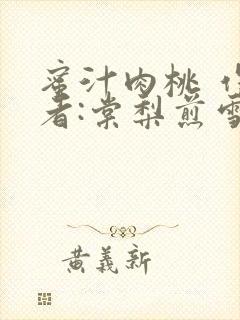 蜜汁肉桃 作
者:棠梨煎雪
黄義新